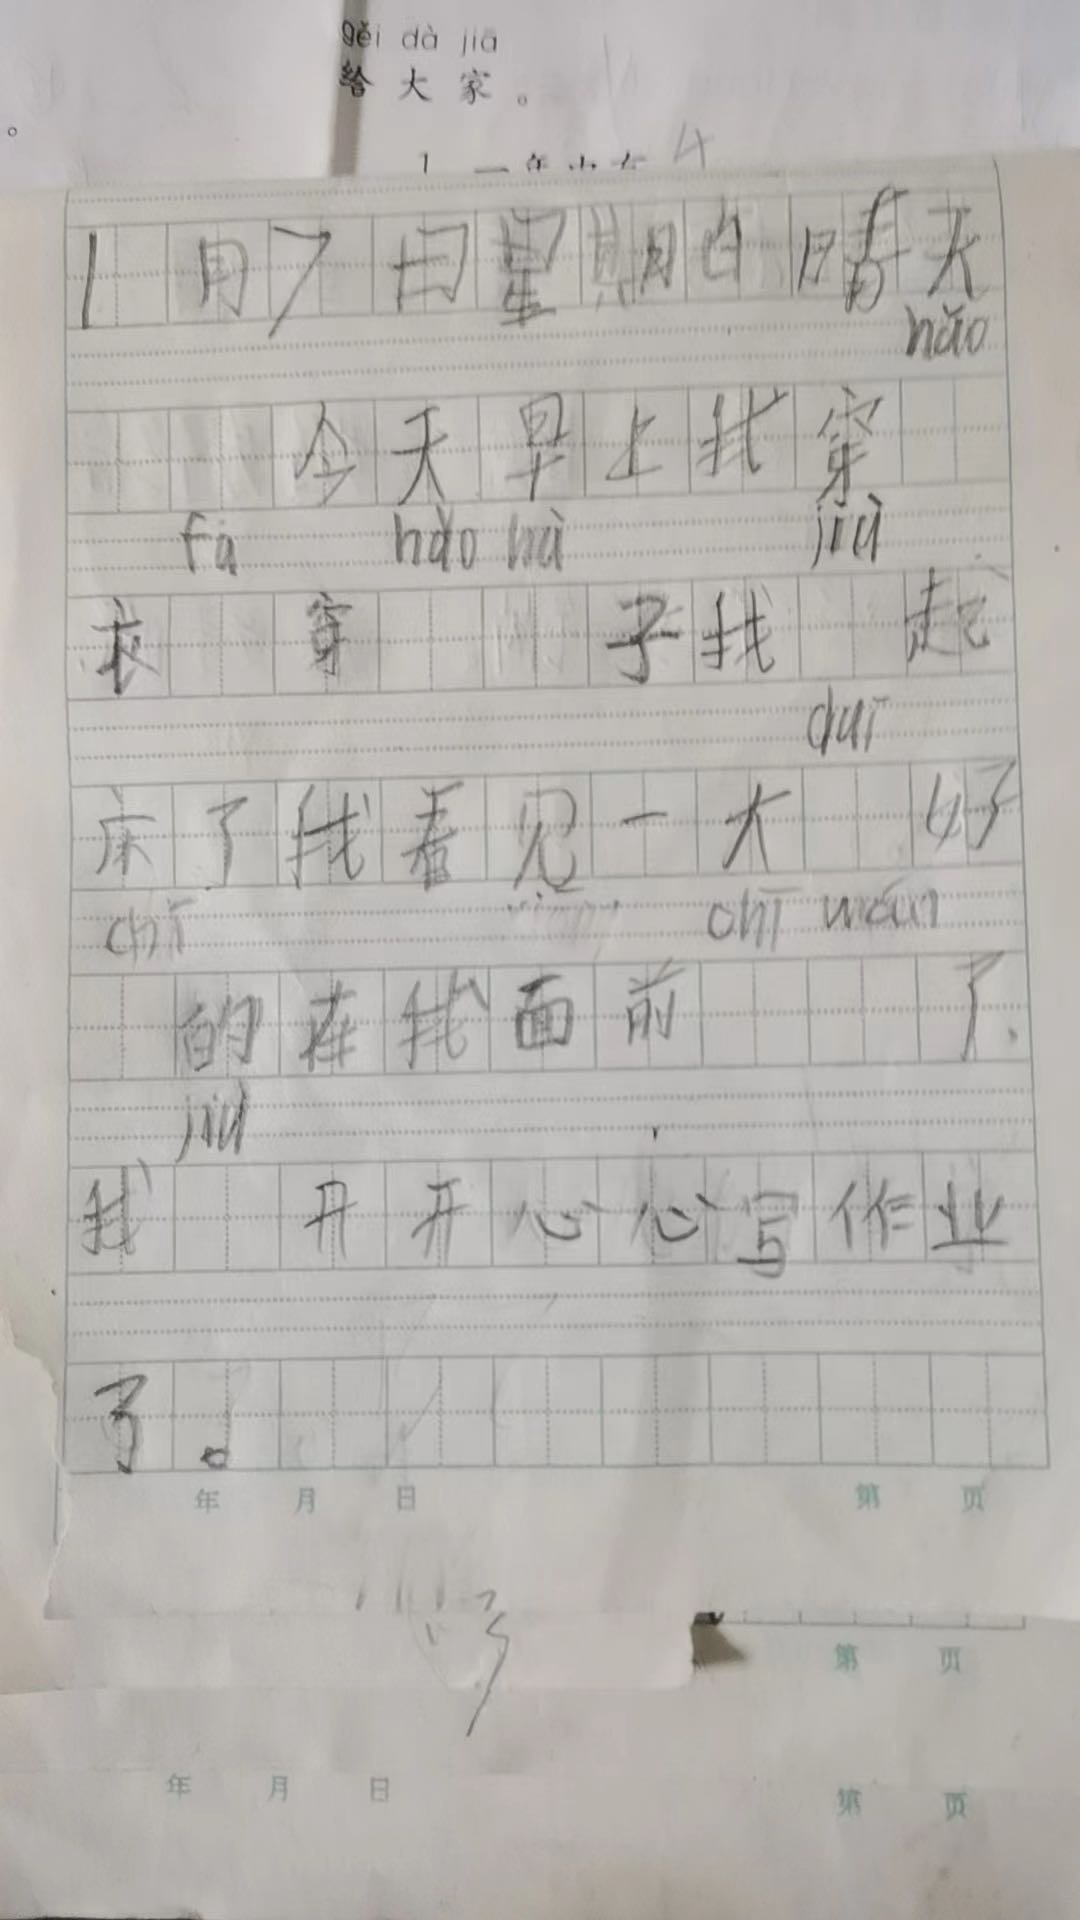 gěi dà jiā
给大家。
。
4
1月7日星期日晴天
hǎo
今天早上我穿
fa hǎo hù jiù
衣 穿 子我 起
duī
床了我看见一大 好
chī chī wán
的在我面前 了.
jiù
我 开开心心写作业
了。
年 月 日 第 页
第 页
年 月 日 第 页